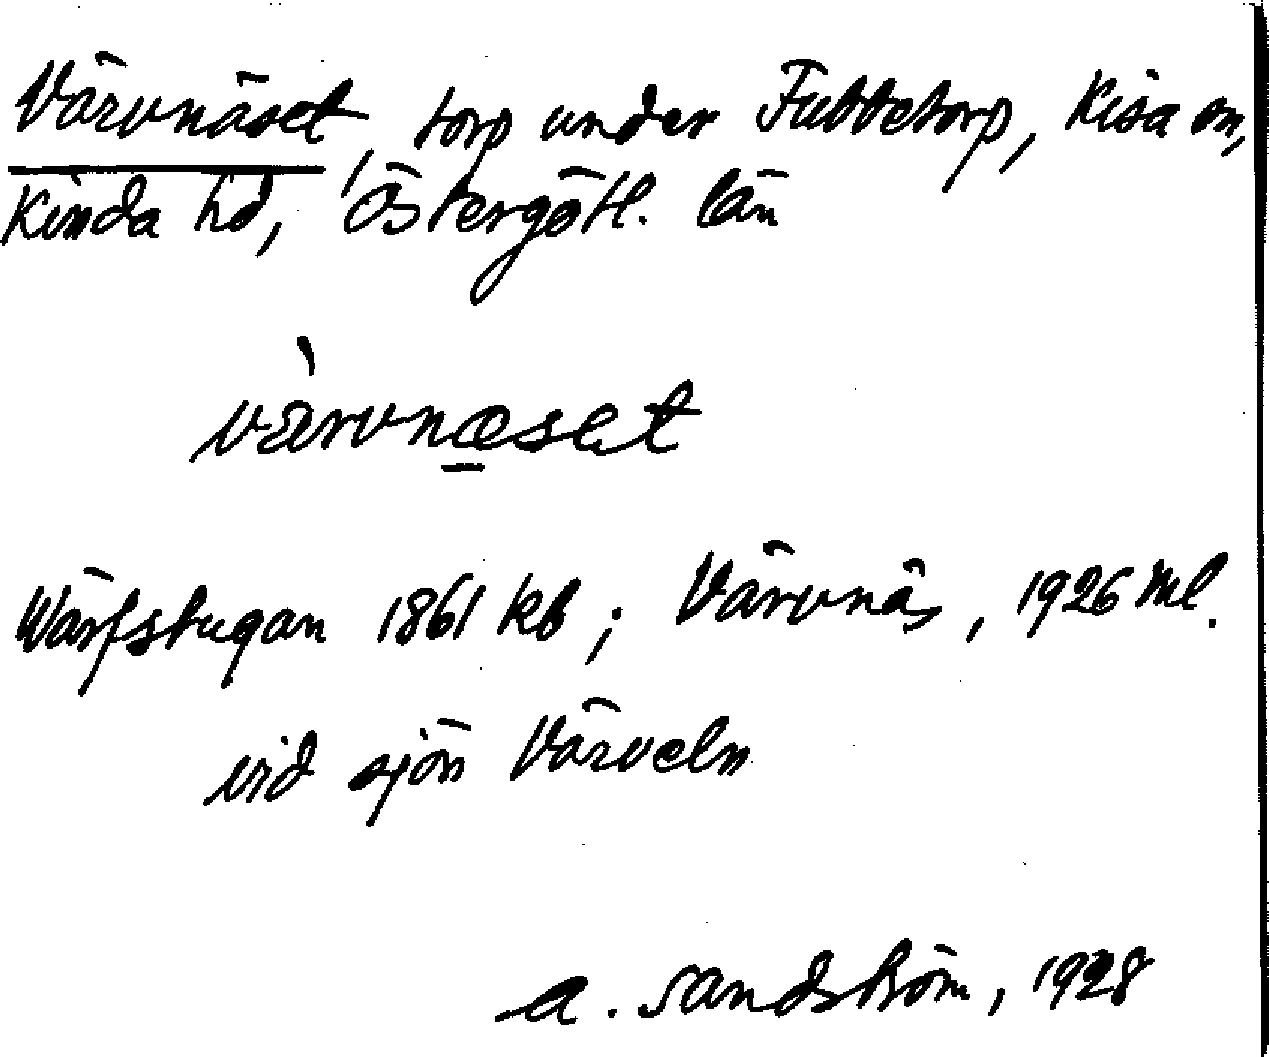 Värvnäset, torp under Fubbetorp, Kisa sn,
Kinda hd, Östergötl. län
vàrvnæset
Wärfstugan 1861 kb; Värvnäs, 1926 ml.
vid sjön Värveln
A. Sandström, 1928